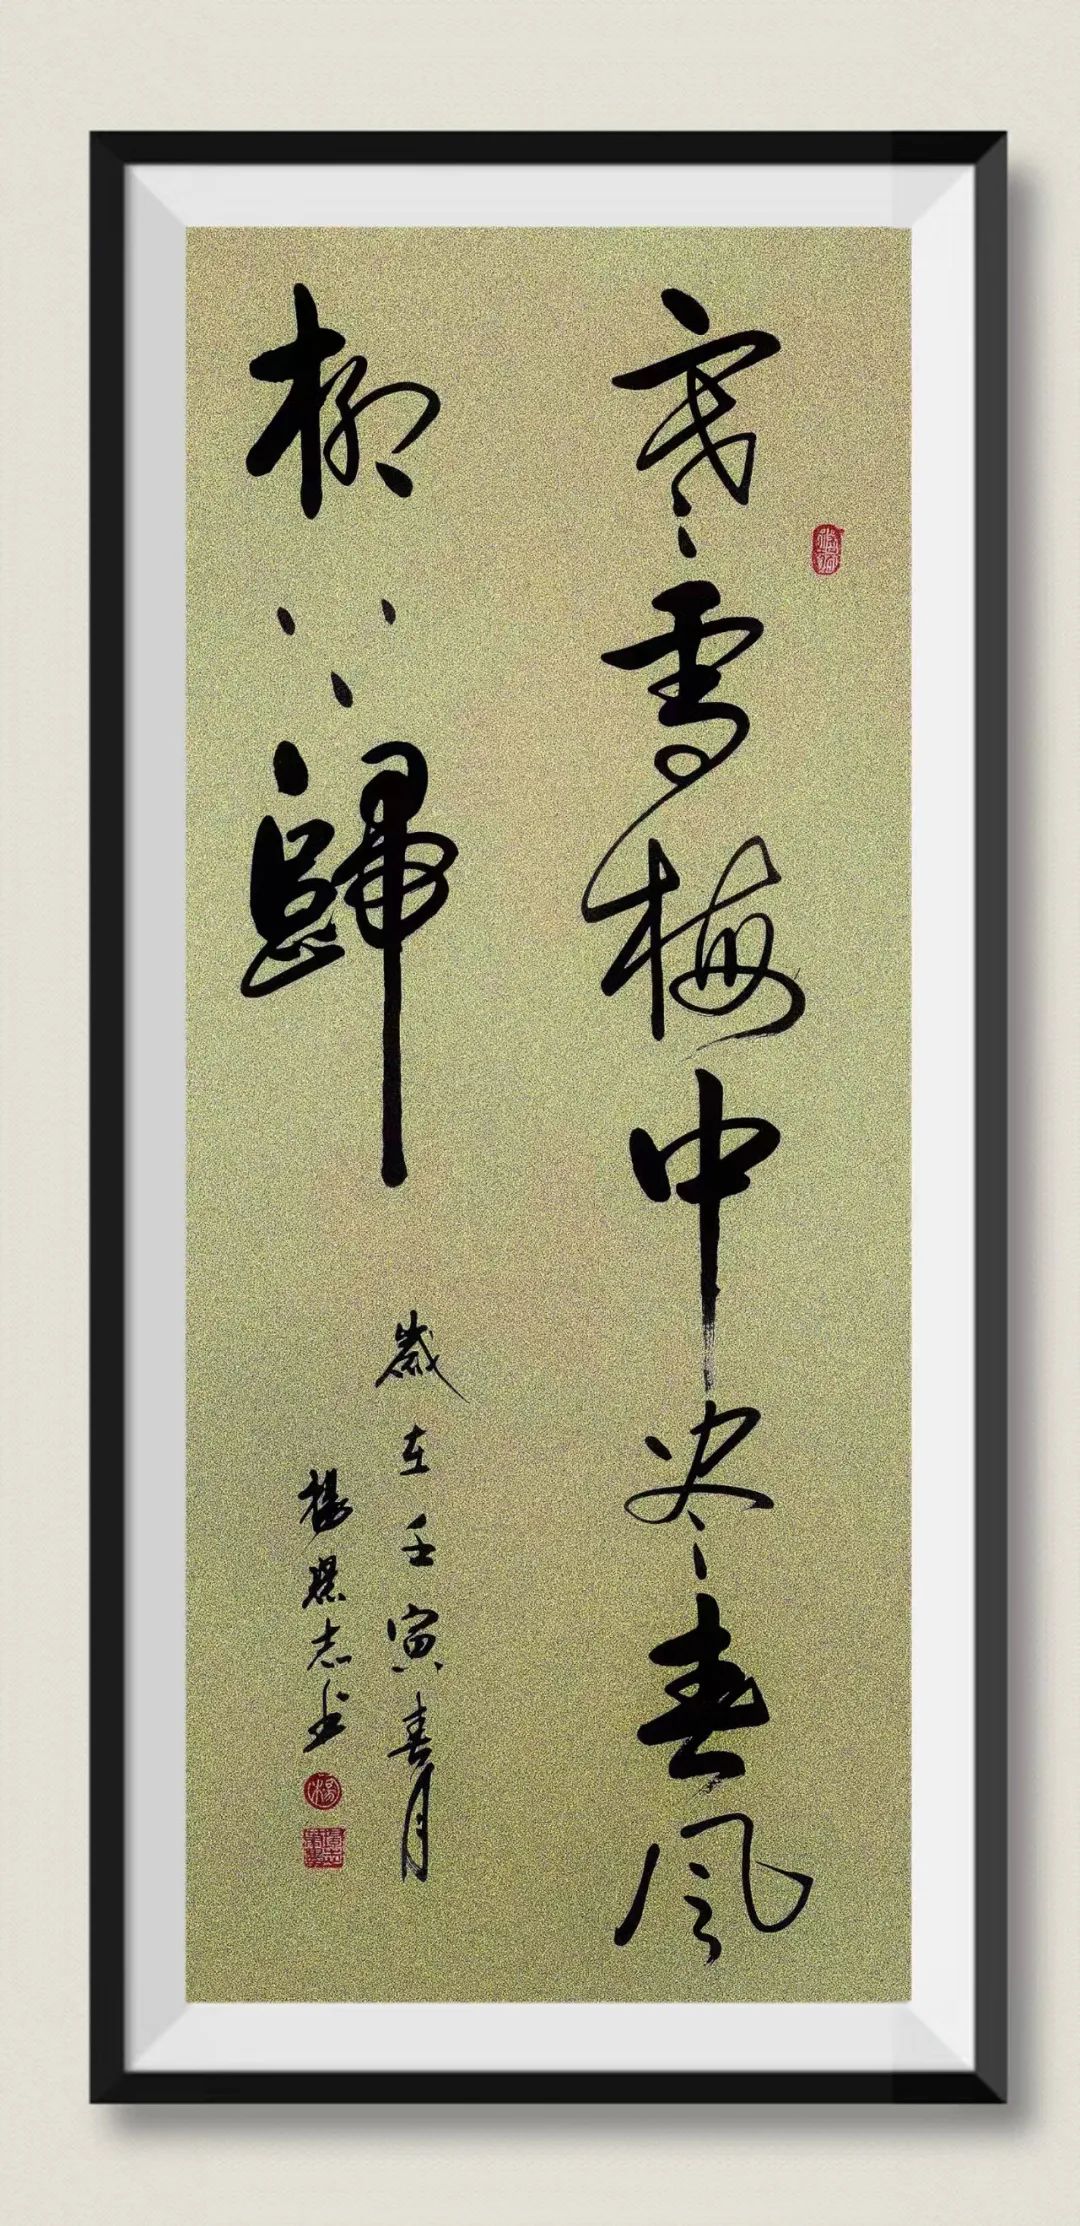 寒雪梅中尽春風
柳上歸
歲在壬寅春月
楊景志书